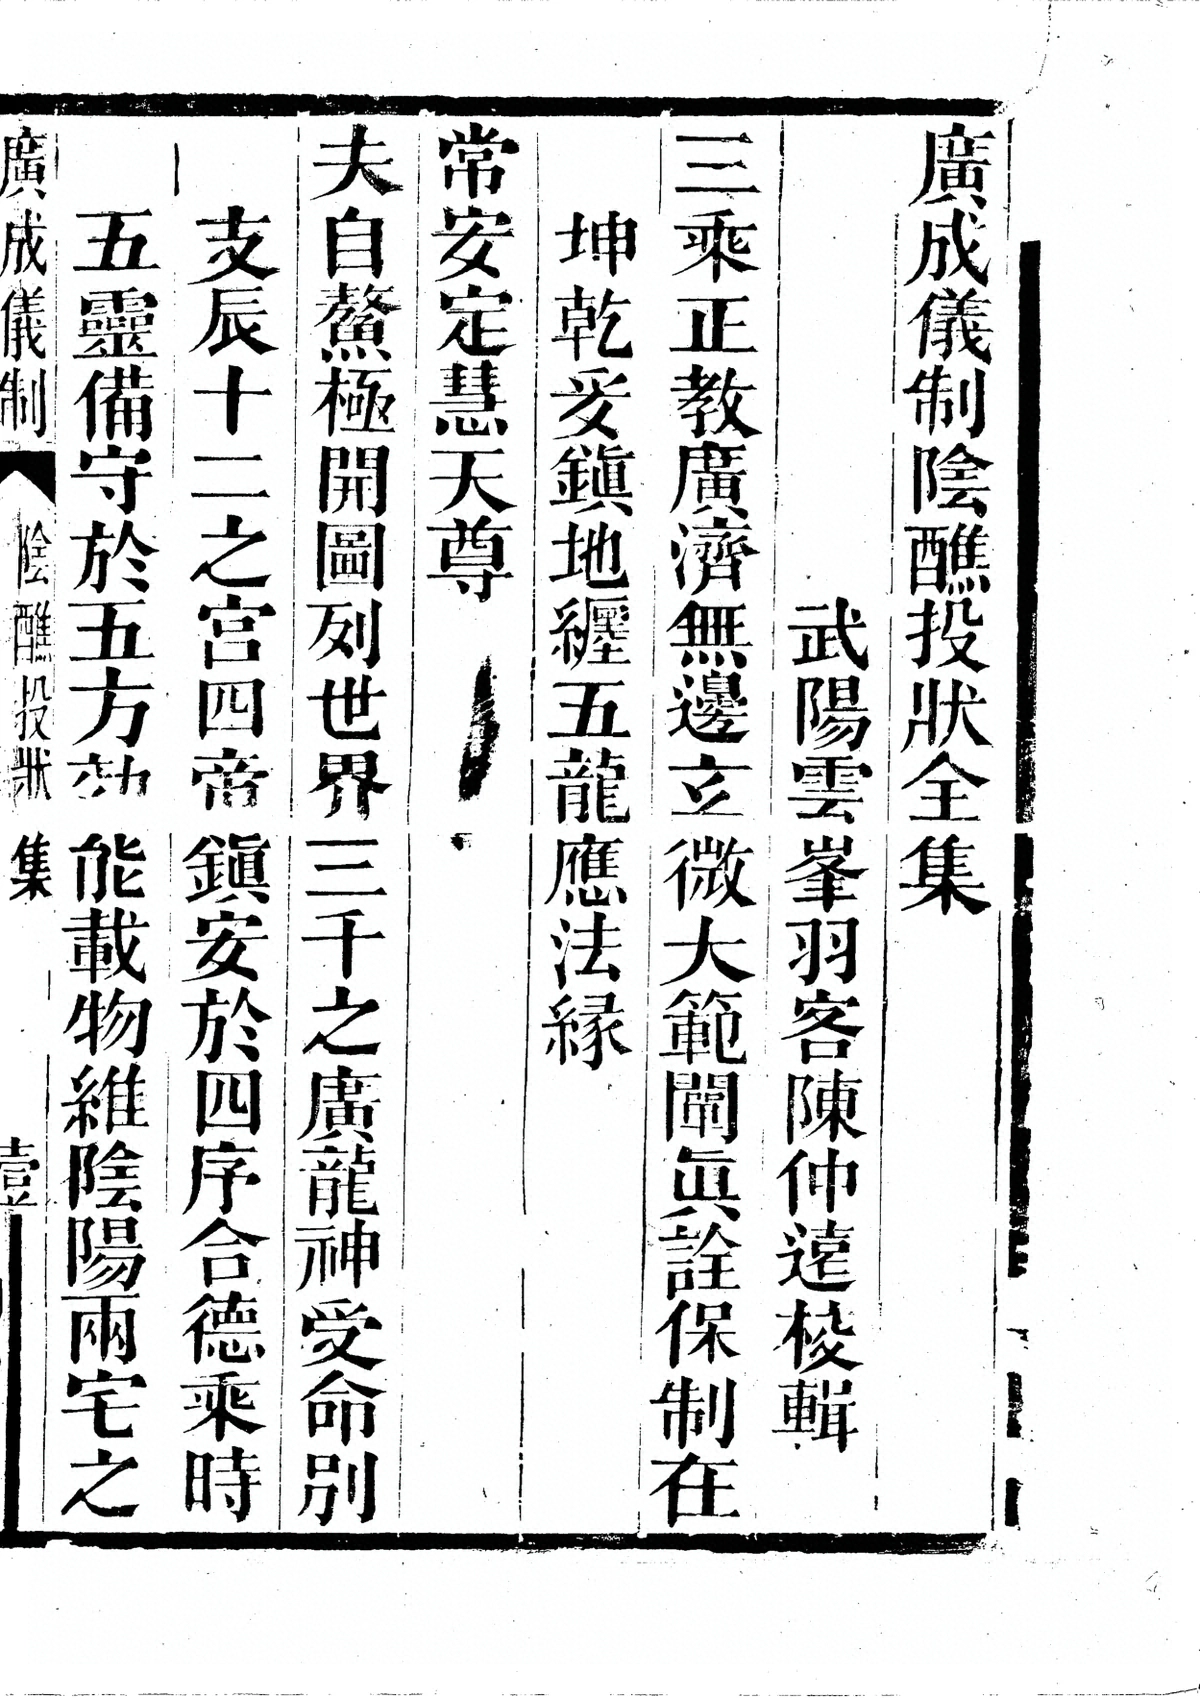 廣成儀制陰醮投狀全集
武陽雲峯羽客陳仲遠校輯
三乘正教廣濟無邊立微大範闡眞詮保制在
坤乾妥鎭地纏五龍應法緣
常安定慧天尊
夫自鰲極開圖列世界三千之廣龍神受命別
支辰十二之宮四帝鎭安於四序合德乘時
五靈備守於五方効能載物維陰陽兩宅之
廣成儀制
陰醮投狀集
壹